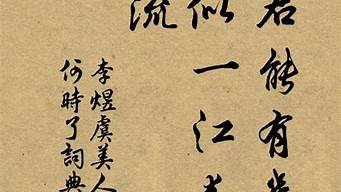 君能有幾
似一江春
流
李煜虞美人
何時了詞典